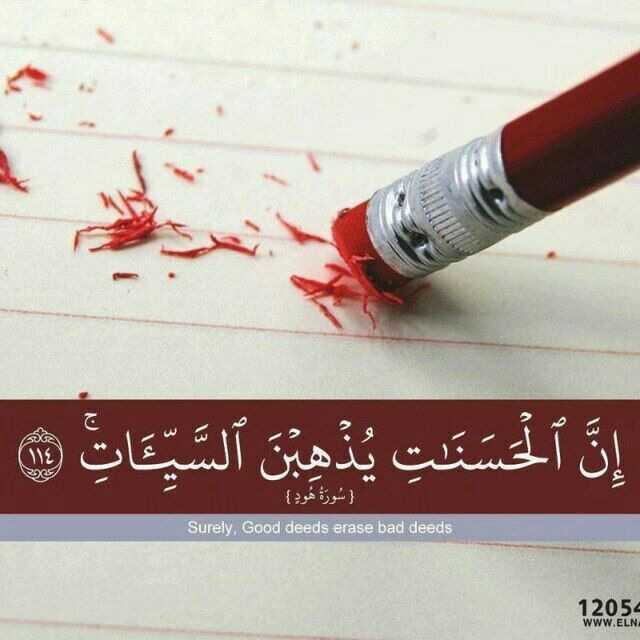 إِنَّ ٱلْحَسَنَـٰتِ يُذْهِبْنَ ٱلسَّيِّـَٔاتِ ۚ ١١٤
{ سُورَةُ هُودٍ }
Surely, Good deeds erase bad deeds
12054
WWW.ELNA